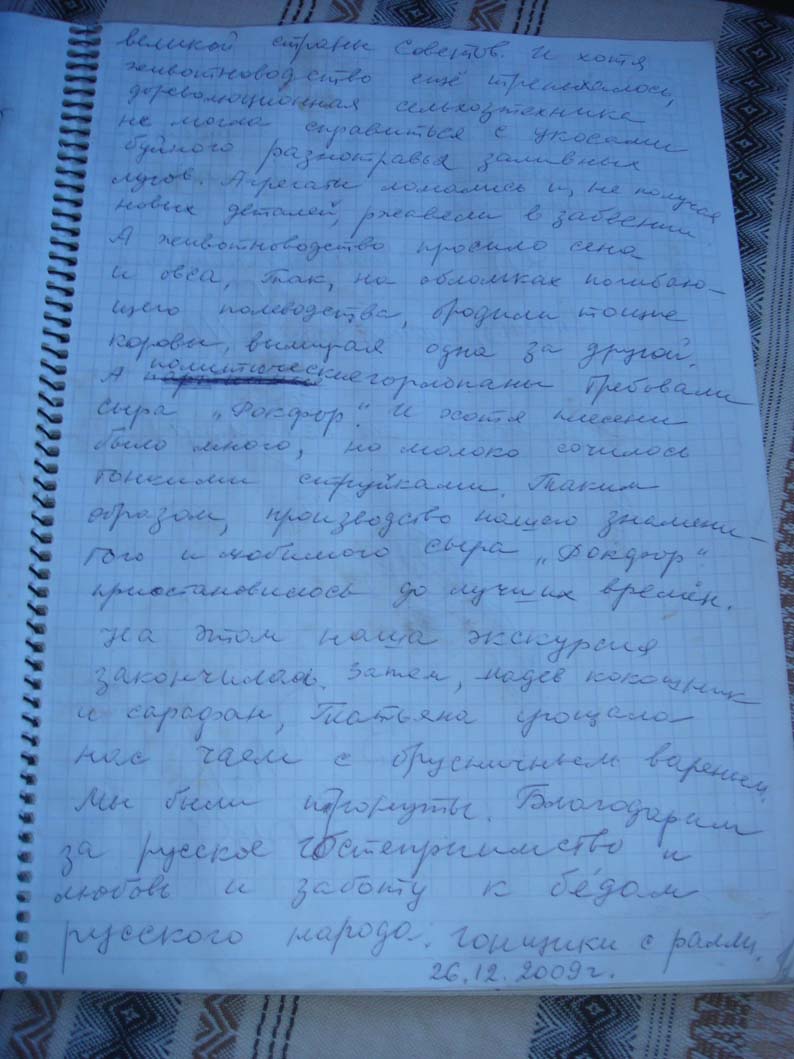 великой страны Советов. И хотя
животноводство ещё трепыхалось,
дореволюционная сельхозтехника
не могла справиться с укосами
буйного разнотравья заливных
лугов. Агрегаты ломались и, не получая
новых деталей, ржавели в забвении.
А животноводство просило сена
и овса, так, на обломках погибаю-
щего полеводства, бродили тощие
коровы, вымирая одна за другой.
А политические горлопаны требовали
сыра „Рокфор". И хотя плесени
было много, но молоко сочилось
тонкими струйками. Таким
образом, производство нашего знамени-
того и любимого сыра „Рокфор"
приостановилось до лучших времён.
На этом наша экскурсия
закончилась. Затем, надев кокошник
и сарафан, Татьяна угощала
нас чаем с брусничным вареньем.
Мы были тронуты. Благодарим
за русское гостеприимство и
любовь и заботу к бедам
русского народа. Гонщики с ралли.
26.12.2009г.